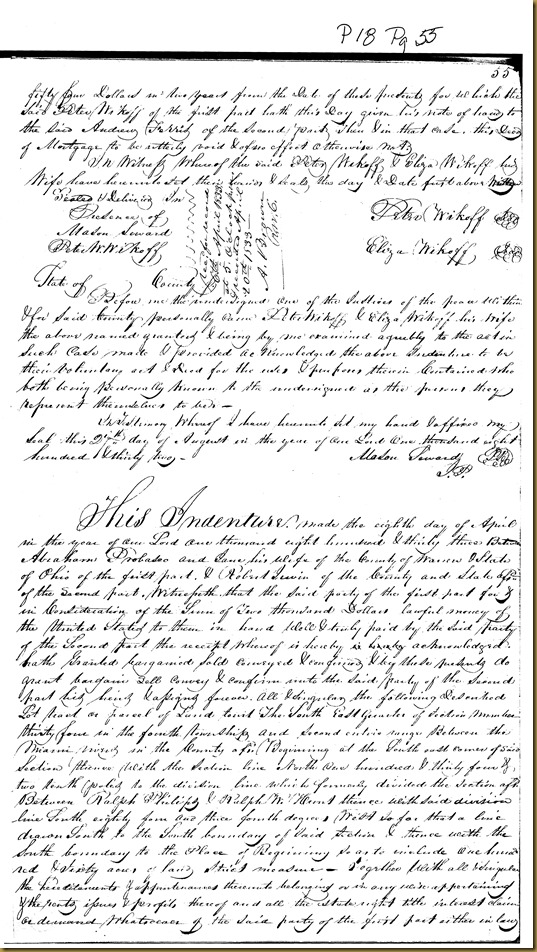 P18 Pg 55
55
fifty four Dollars in two years from the Date of these presents for which the
said Peter Wikoff of the first part hath this Day given his note of hand to
the said Andrew of the Second part, then & in that case this Deed
of Mortgage to be utterly void & of no effect otherwise not
In Witness Whereof the said Peter Wikoff & Eliza Wikoff his
Wife have hereunto set their hands & seals the day & Date first above written
Sealed & Delivered In
Presence of
Mason Seward
Peter W Wikoff
Peter Wikoff Seal
Eliza Wikoff Seal
April 1833
at 5 Oclock
April
20th 1833
Rec.
State of County
Before me the undersigned one of the Justices of the peace within
& for said County personally came Peter Wikoff & Eliza Wikoff his Wife
the above named grantors & being by me examined agreebly to the act in
Such Case made & provided acknowledged the above Indenture to be
their Voluntary act & Deed for the uses & purposes therein Contained who
both being personally known to the undersigned as the persons they
represent themselves to be –
In testimony Whereof I have hereunto set my hand & affixed my
seal this 27th day of August in the year of our Lord One thousand eight
hundred & thirty two – Mason Seward Seal
J.P.
This Indenture, made the eighth day of April
in the year of our Lord One thousand eight hundred & thirty three Between
Abraham Probasco and Jane his Wife of the County of Warren & State
of Ohio of the first part, & Robert Irwin of the County and State afsd
of the second part, Witnesseth that the said party of the first part for &
in Consideration of the Sum of Two thousand Dollars lawful money of
the United States to them in hand Well & truly paid by the said party
of the Second part the receipt whereof is hereby is hereby acknowledged
hath Granted bargained sold Conveyed & confirmed & by these presents do
grant bargain Sell Convey & confirm unto the said party of the Second
part his heirs & assigns forever. All & Singular the following described
Lot tract or parcel of Land, to wit The South East quarter of Section number
thirty four in the fourth township and second entire range Between the
Miami rivers in the County afsd, Beginning at the South east corner of said
Section thence With the Section line North One hundred & thirty four &
two tenth poles to the division line which formerly divided the section afsd
Between Ralph Philips & Ralph W Hunt thence with said division
line South eighty four and three fourth degrees West so far that a line
drawn South to the South boundary of Said Section & thence with the
South boundary to the Place of Beginning so as to include One hund
red & Sixty acres of land Strict measure – Together With all & Singular
the hereditaments & appurtenances thereunto belonging or in any wise appertaining
& the rents, issues & profits thereof and all the state right title interest claim
or demand Whatsoever of the said party of the first part either in law